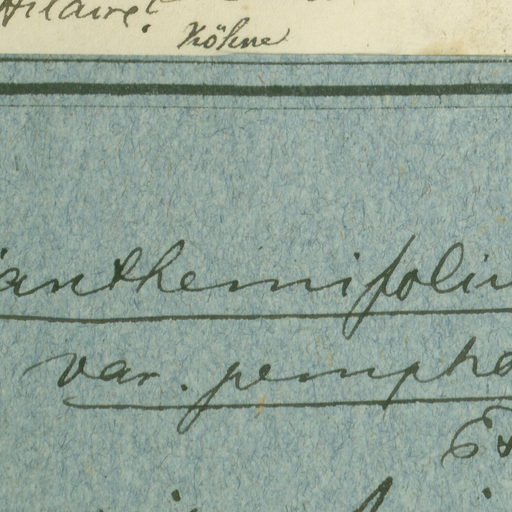 Hilaire!
Köhne
ianthemifoliu
var. pempho